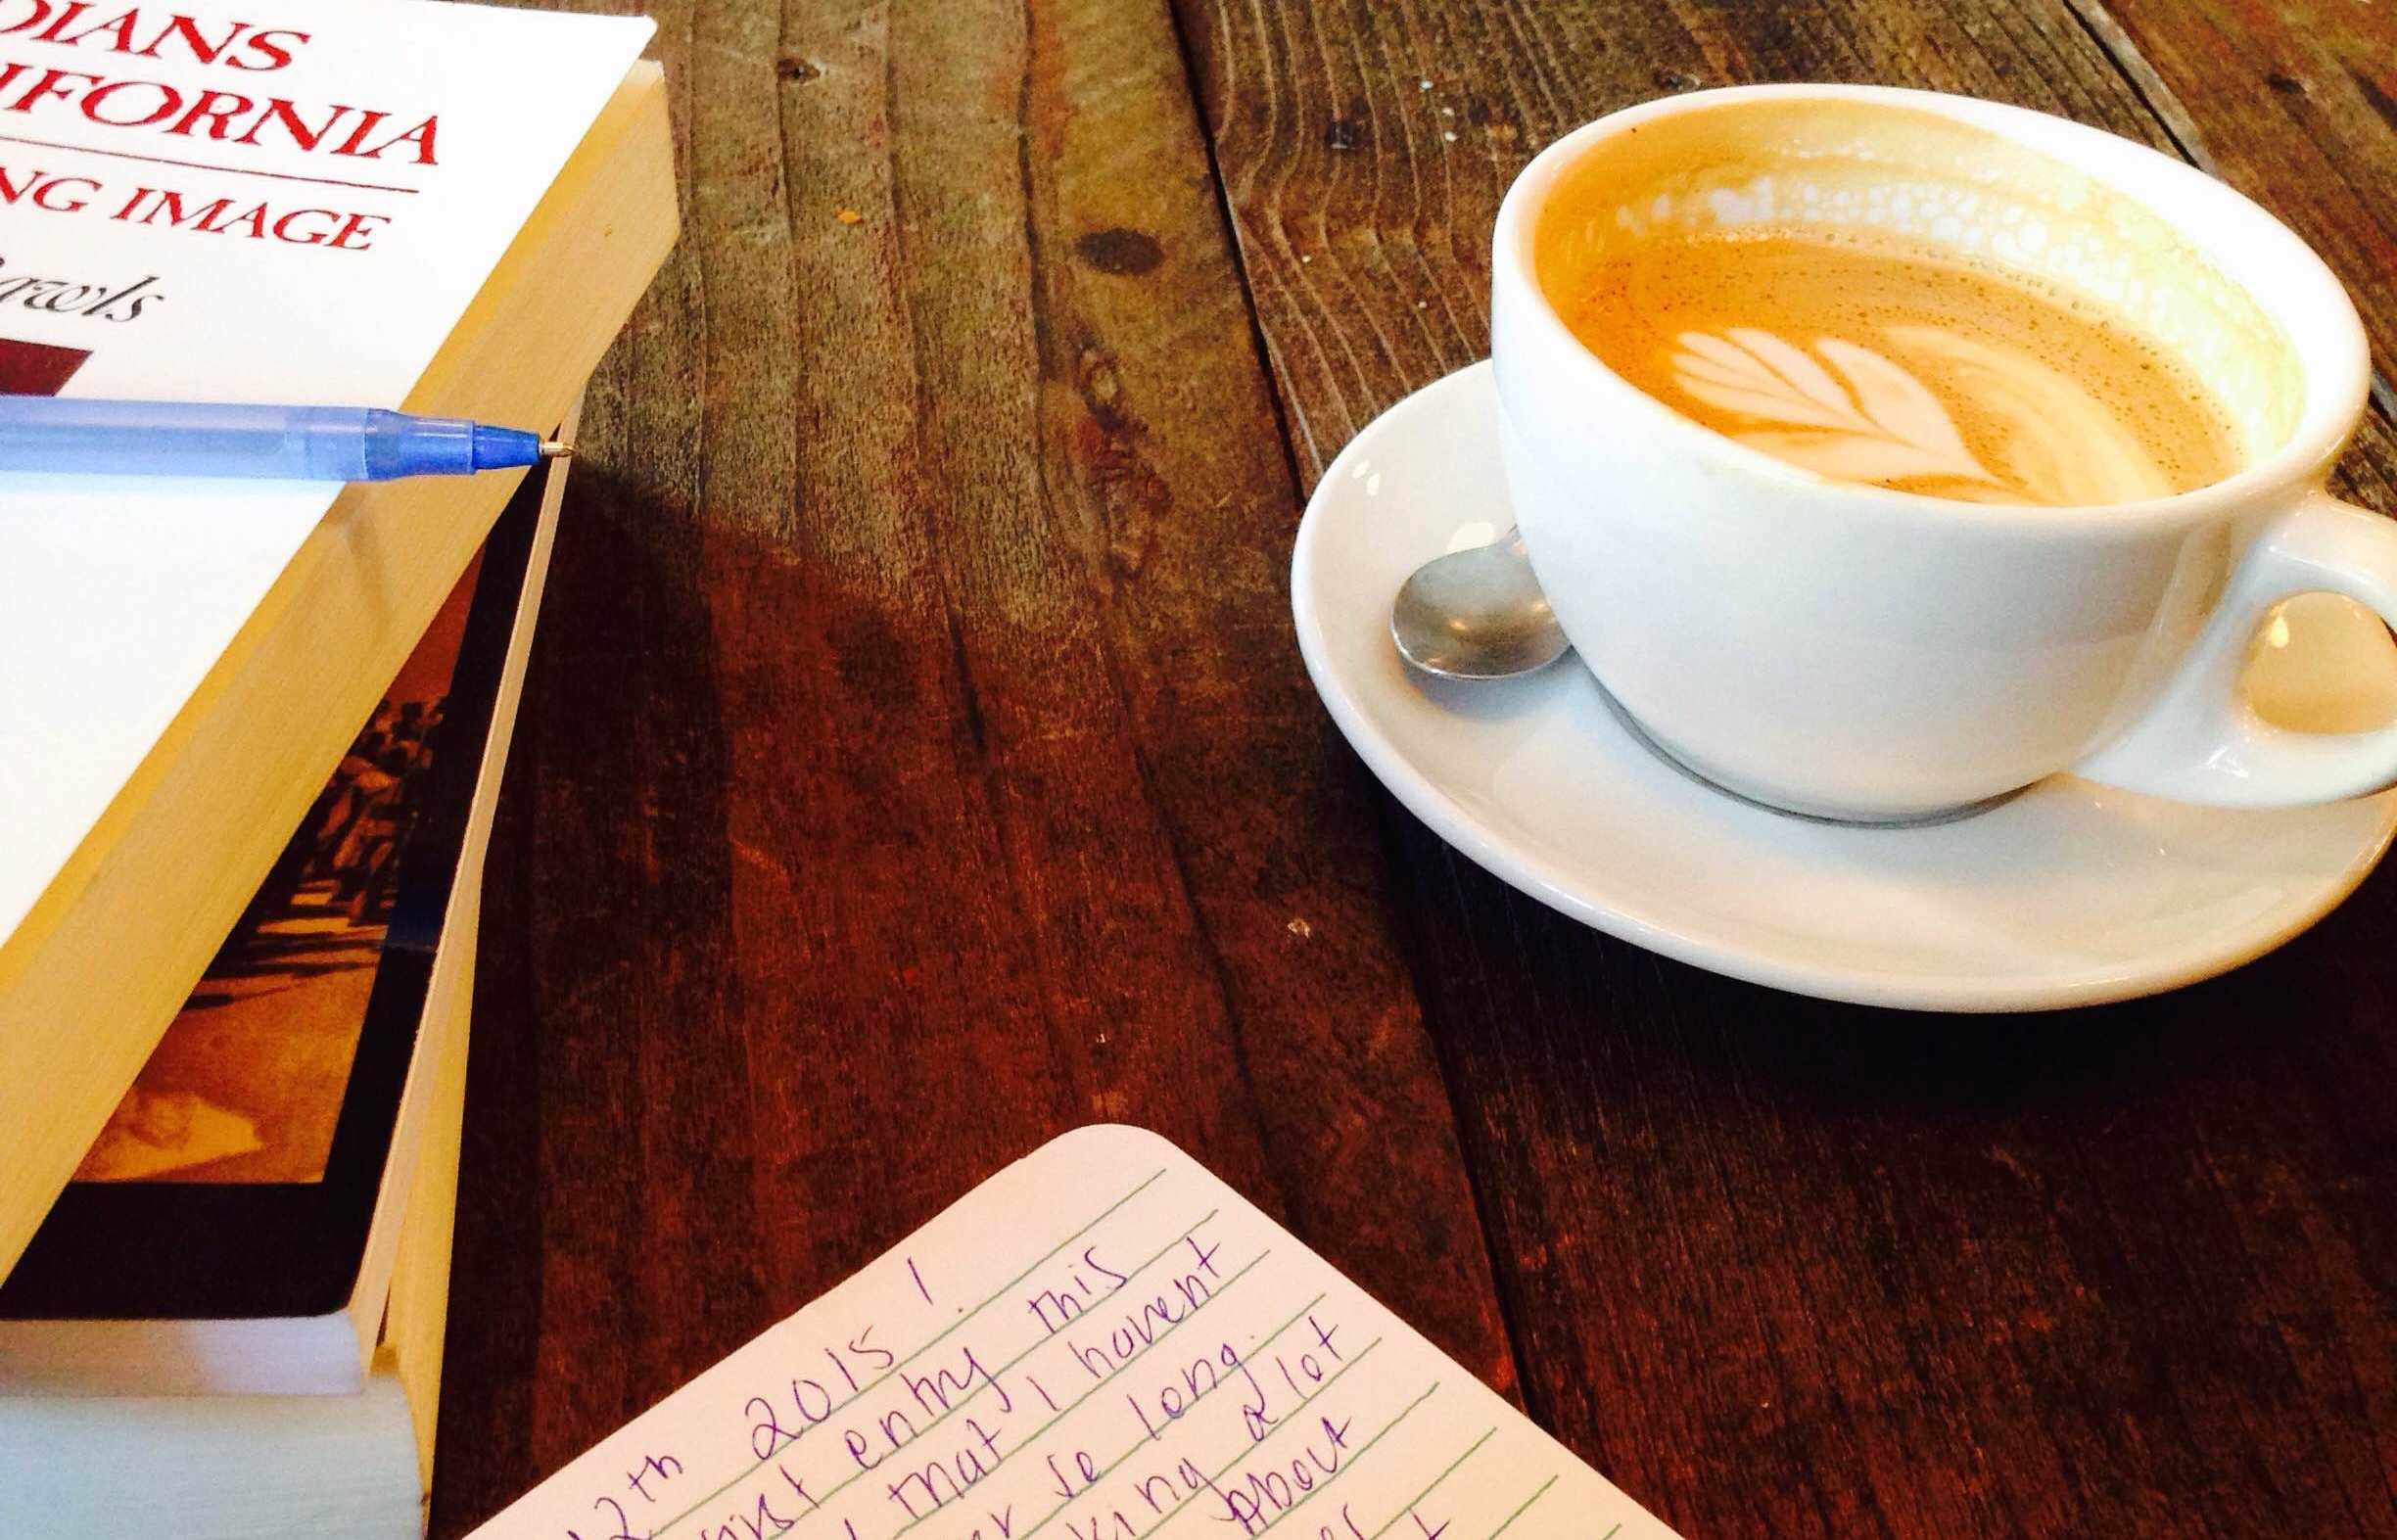 DIANS
IFORNIA
NG IMAGE
awls
12th 2015!
first entry this
that I havent
so long.
king a lot
About